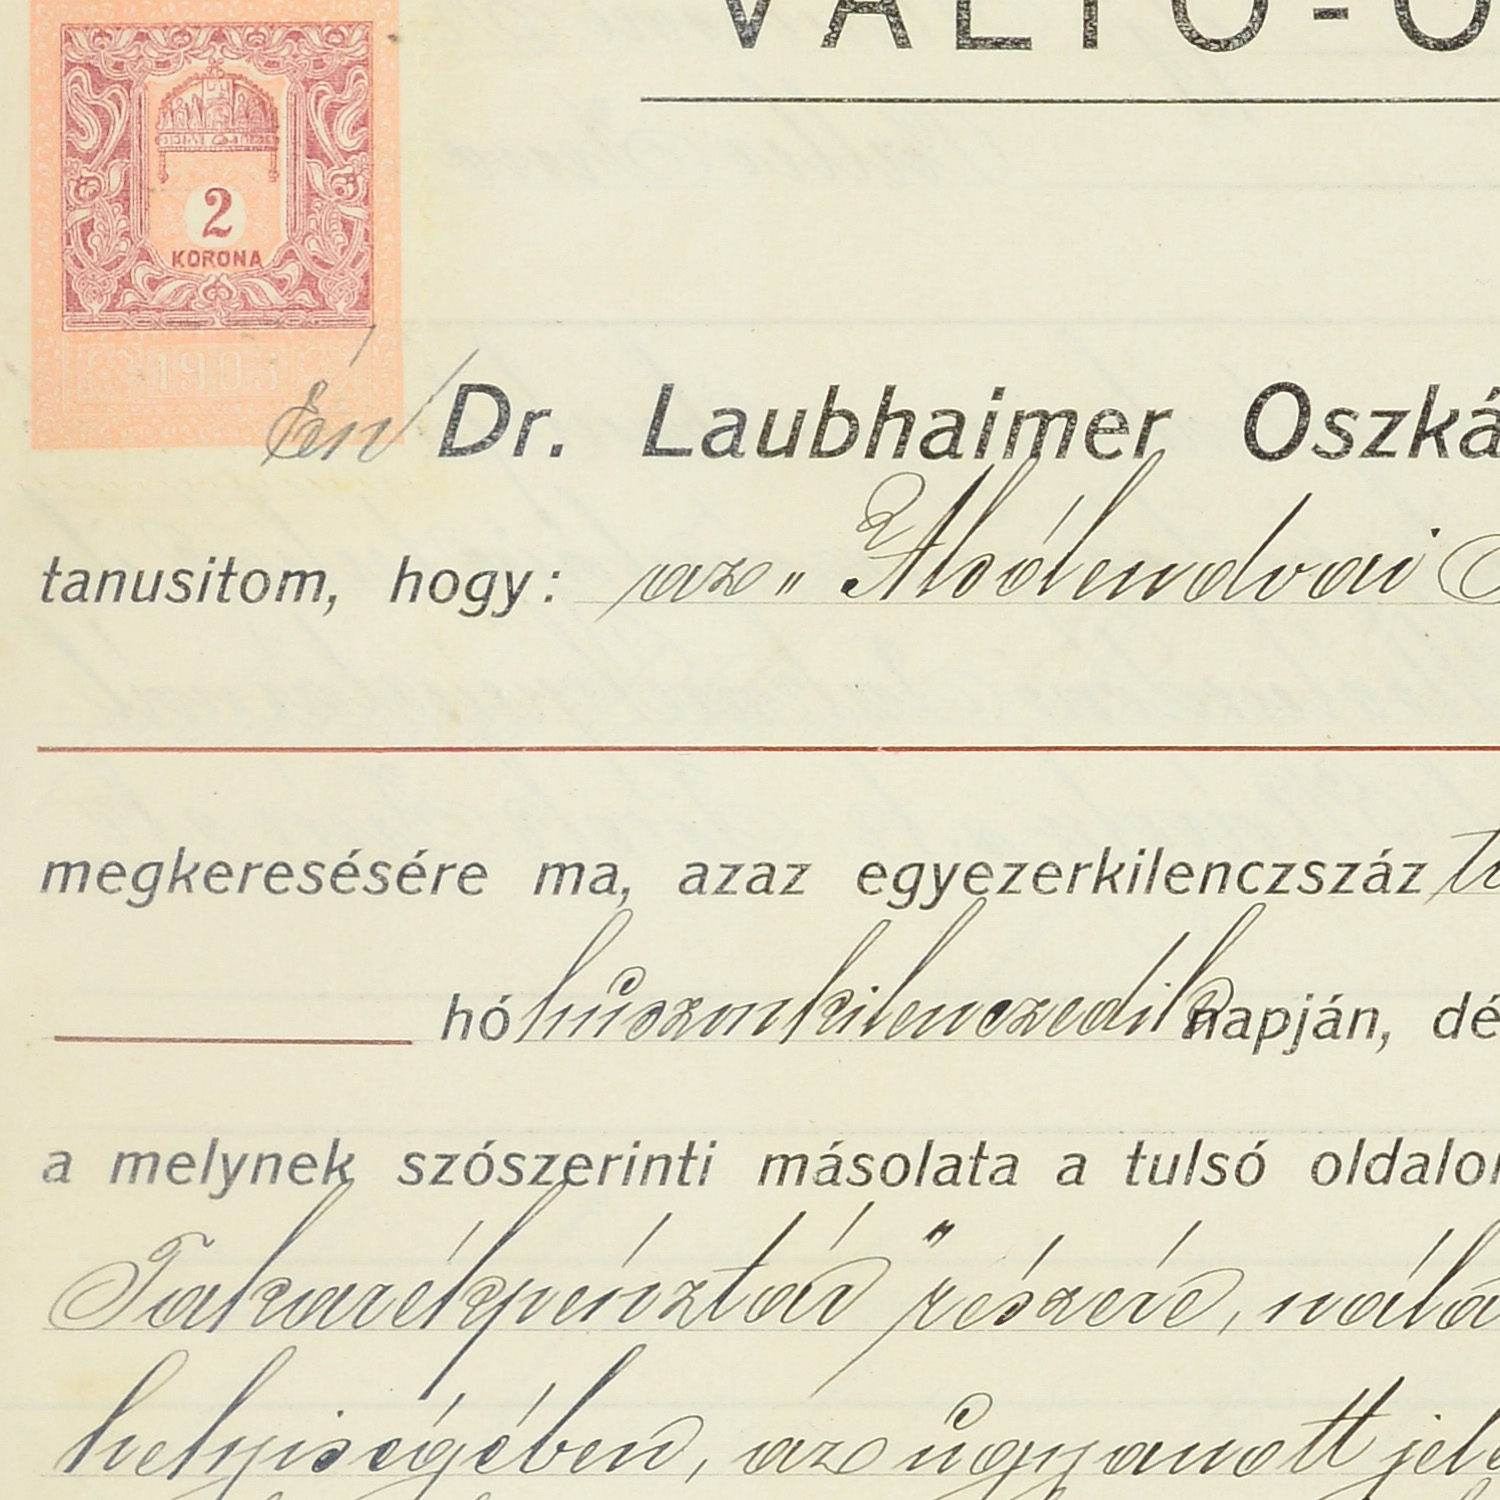 VÁLTÓ-Ó
2
KORONA
1903
Én Dr. Laubhaimer Oszká
tanusitom, hogy: az „Alsólendvai
megkeresésére ma, azaz egyezerkilenczszáz
hó húszonkilenczedik napján, dé
a melynek szószerinti másolata a tulsó oldalon
Takarékpénztár" részére, nála
helyiségében, az ugyanott jele